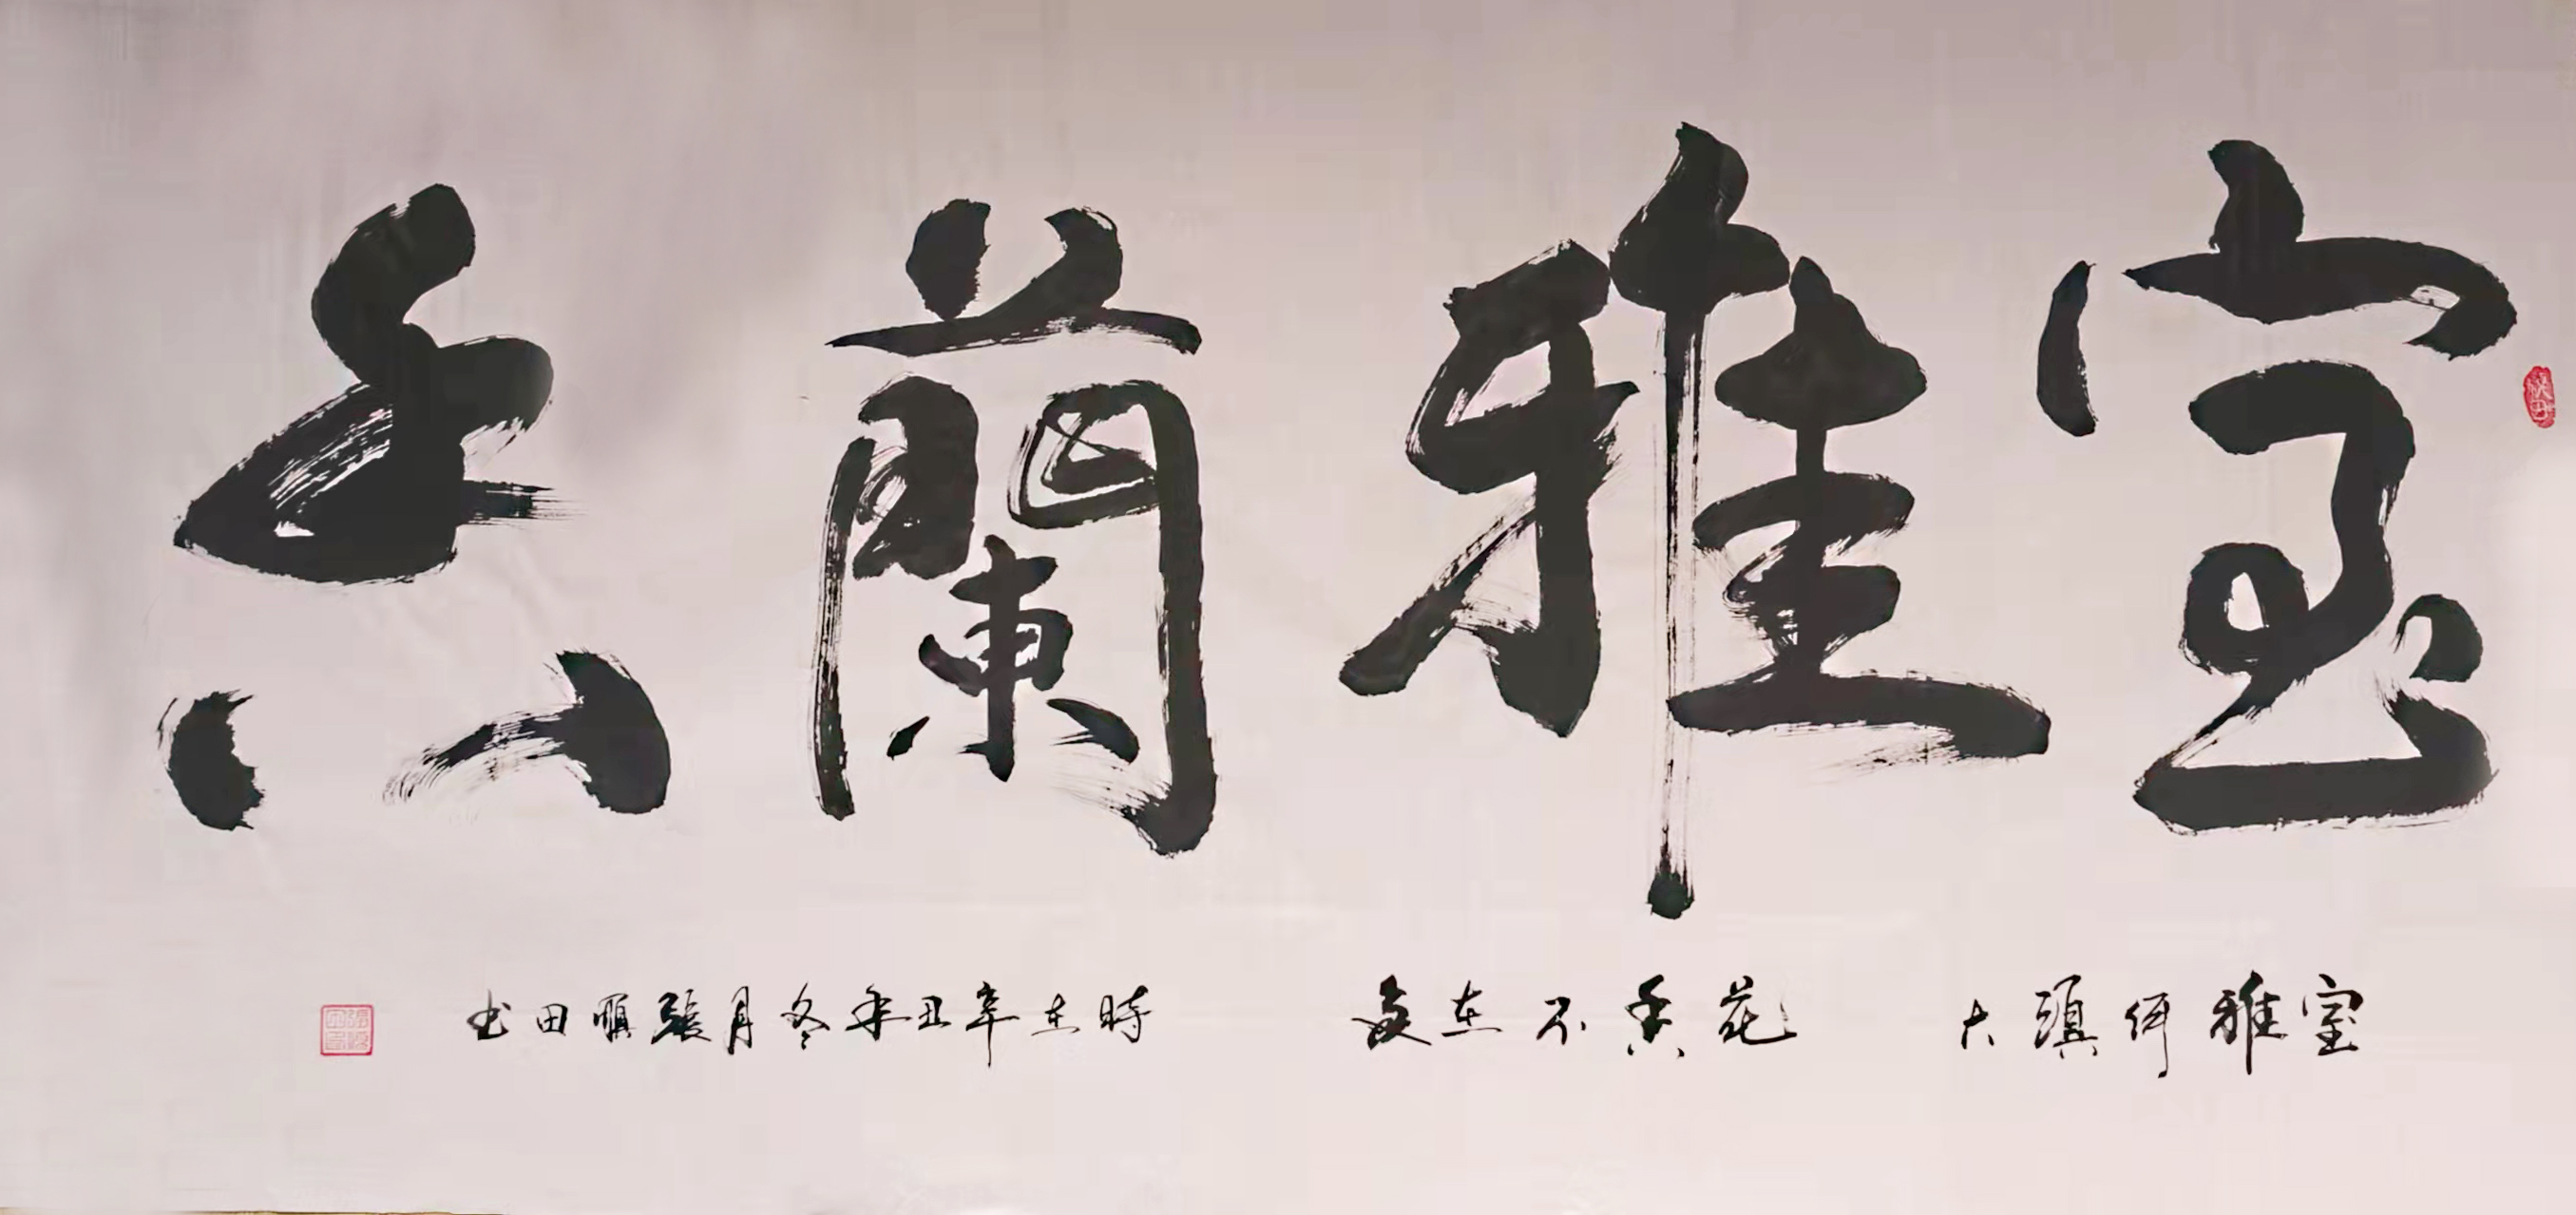 室雅蘭香
室雅何須大
花香不在多
時在辛丑年冬月張順田书